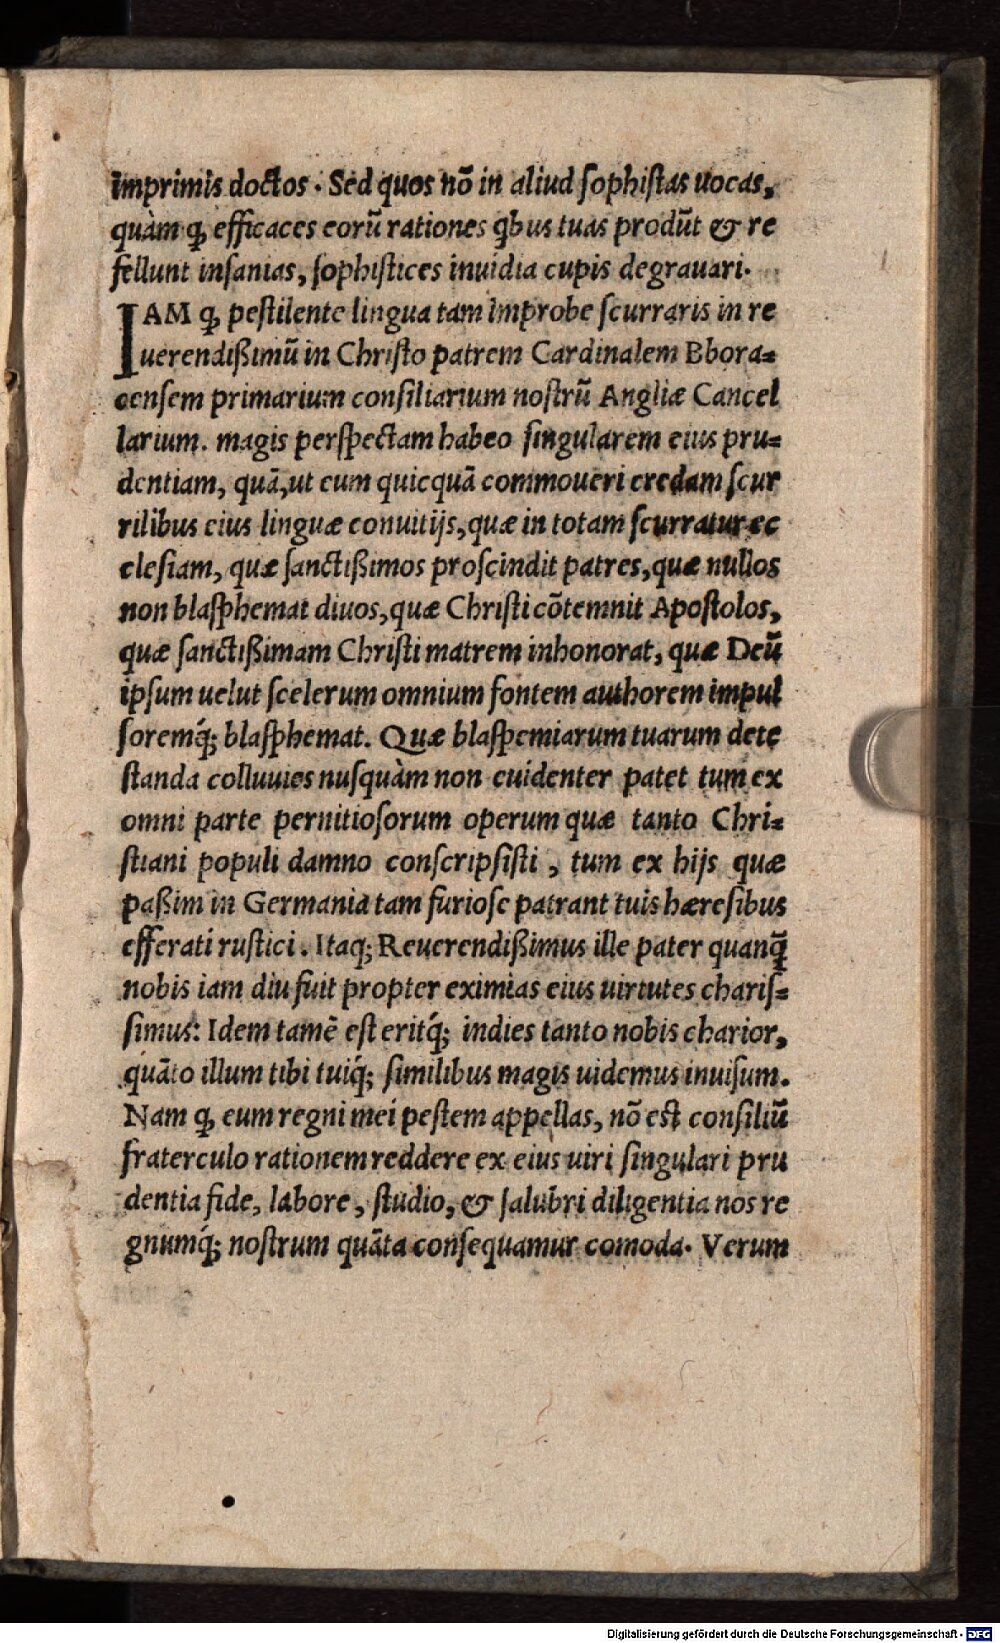 imprimis doctos. Sed quos nõ in aliud sophistas uocas,
quàm ꝙ efficaces eorũ rationes qͥbus tuas produ͂t & re
fellunt insanias, sophistices inuidia cupis degrauari.
IAM ꝙ pestilente lingua tam improbe scurraris in re
uerendißimũ in Christo patrem Cardinalem Bbora-
censem primarium consiliarium nostrũ Angliæ Cancel
larium. magis perspectam habeo singularem eius pru-
dentiam, quã, ut eum quicquã commoueri credam scur
rilibus eius linguæ conuitijs, quæ in totam scurratur ec
clesiam, quæ sanctißimos proscindit patres, quæ nullos
non blasphemat diuos, quæ Christi cõtemnit Apostolos,
quæ sanctißimam Christi matrem inhonorat, quæ Deũ
ipsum uelut scelerum omnium fontem authorem impul
soremq́; blasphemat. Quæ blaspemiarum tuarum dete
standa colluuies nusquàm non euidenter patet tum ex
omni parte pernitiosorum operum quæ tanto Chri-
stiani populi damno conscripsisti, tum ex hijs quæ
paßim in Germania tam furiose patrant tuis hæresibus
efferati rustici. Itaq; Reuerendißimus ille pater quanꝗ̃
nobis iam diu fuit propter eximias eius uirtutes charis-
simus: Idem tamẽ est eritq́; indies tanto nobis charior,
quãto illum tibi tuiq́; similibus magis uidemus inuisum.
Nam ꝙ eum regni mei pestem appellas, nõ est consiliũ
fraterculo rationem reddere ex eius uiri singulari pru
dentia fide, labore, studio, & salubri diligentia nos re
gnumq́; nostrum quãta consequamur comoda. Verum
Digitalisierung gefördert durch die Deutsche Forschungsgemeinschaft - DFG